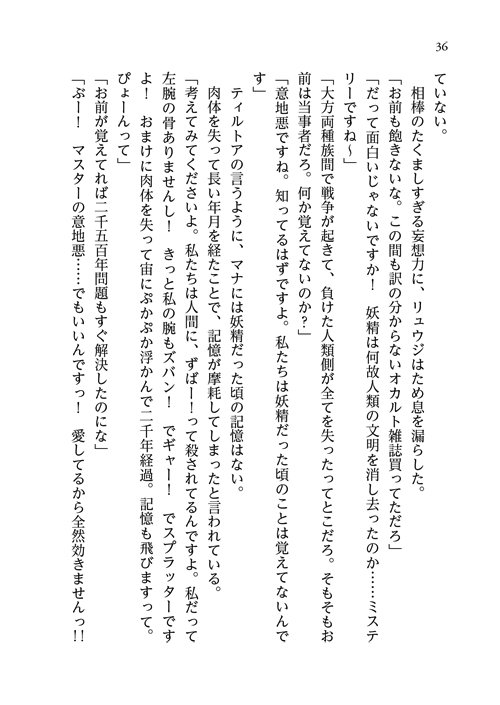 36
ていない。
　相棒のたくましすぎる妄想力に、リュウジはため息を漏らした。
「お前も飽きないな。この間も訳の分からないオカルト雑誌買ってただろ」
「だって面白いじゃないですか！　妖精は何故人類の文明を消し去ったのか……ミステ
リーですね〜」
「大方両種族間で戦争が起きて、負けた人類側が全てを失ったってとこだろ。そもそもお
前は当事者だろ。何か覚えてないのか？」
「意地悪ですね。知ってるはずですよ。私たちは妖精だった頃のことは覚えてないんで
す」
　ティルトアの言うように、マナには妖精だった頃の記憶はない。
　肉体を失って長い年月を経たことで、記憶が摩耗してしまったと言われている。
「考えてみてくださいよ。私たちは人間に、ずばー！って殺されてるんですよ。私だって
左腕の骨ありませんし！　きっと私の腕もズバン！　でギャー！　でスプラッターです
よ！　おまけに肉体を失って宙にぷかぷか浮かんで二千年経過。記憶も飛びますって。
ぴょーんって」
「お前が覚えてれば二千五百年問題もすぐ解決したのにな」
「ぶー！　マスターの意地悪……でもいいんですっ！　愛してるから全然効きませんっ!!